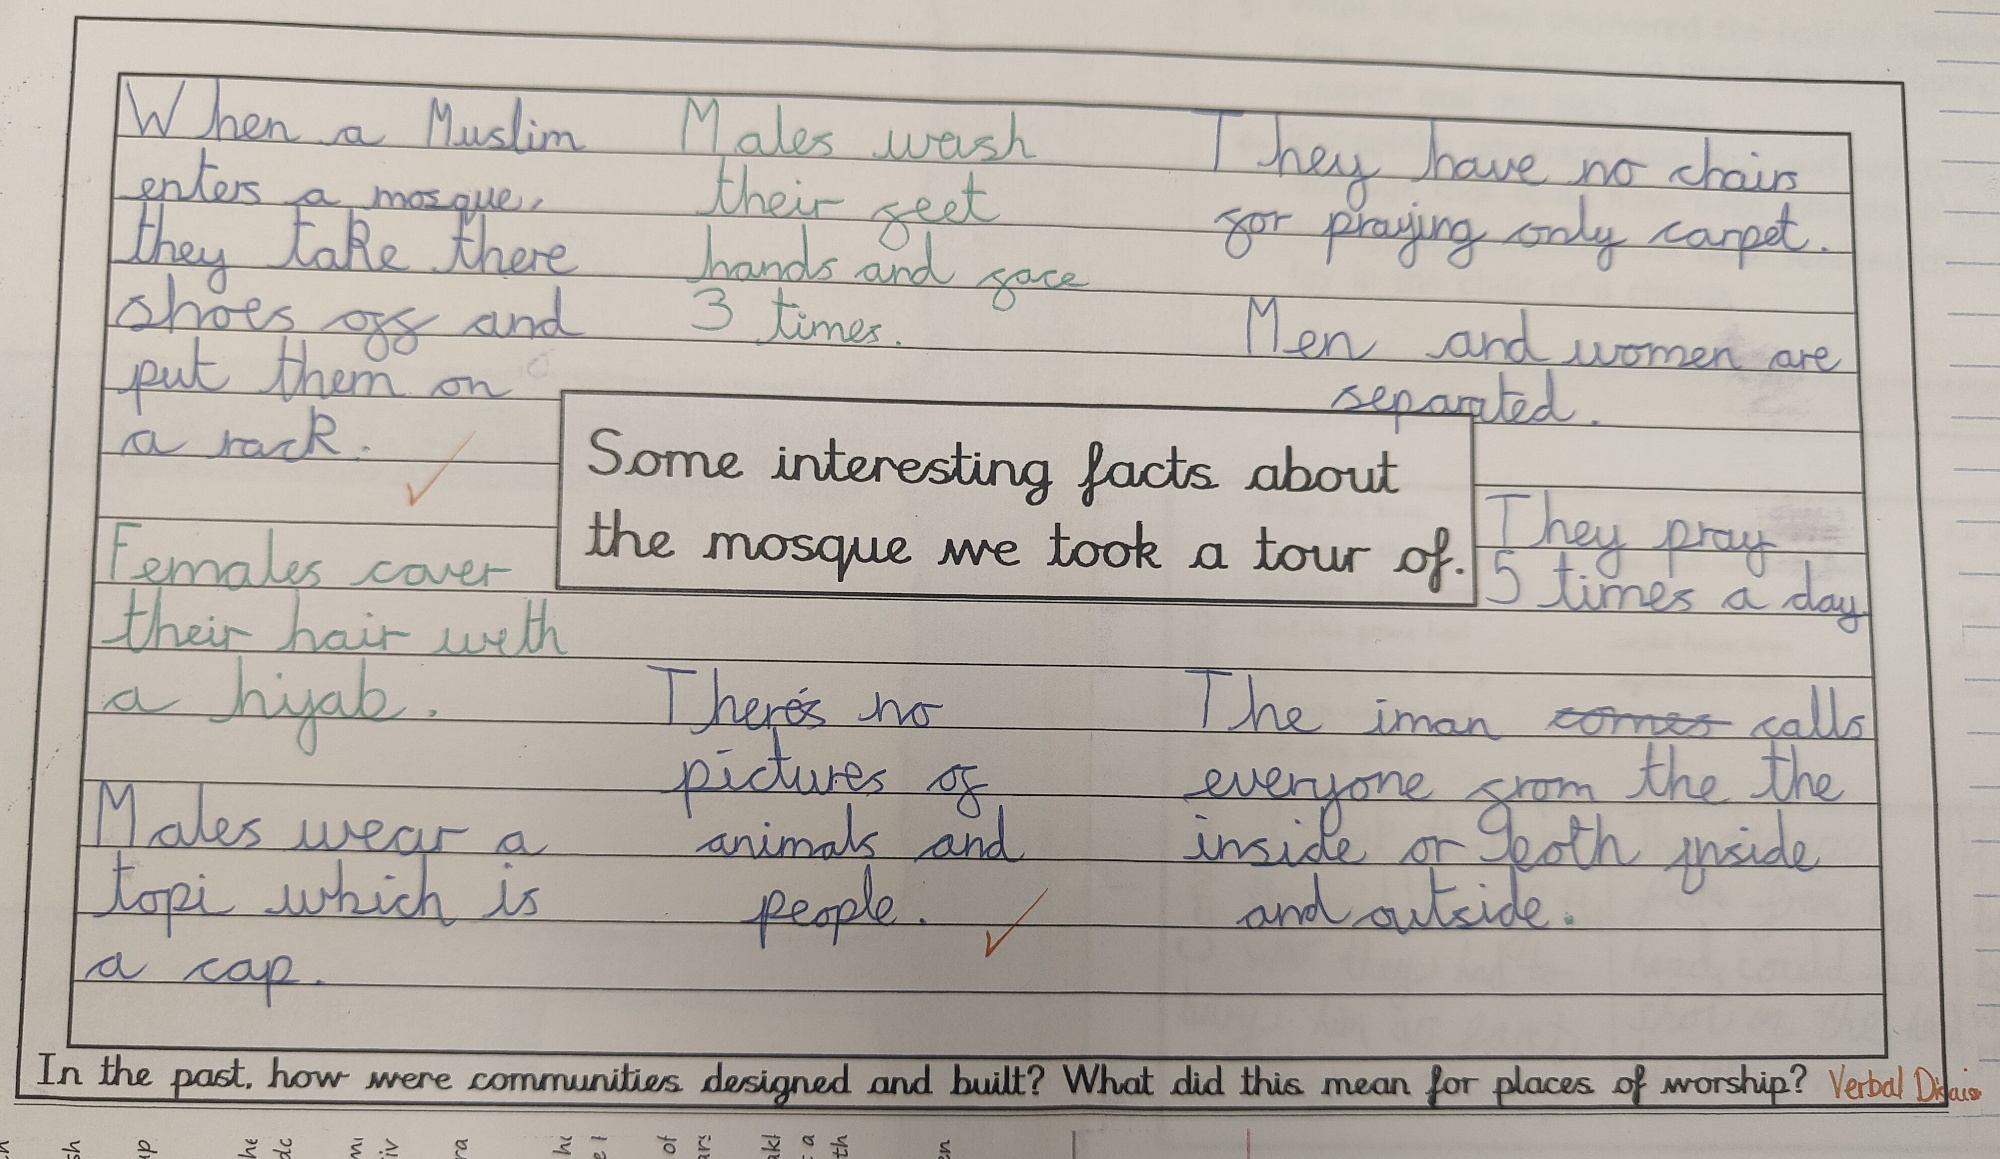 When a Muslim
enters a mosque,
they take there
shoes off and
put them on
a rack.
Females cover
their hair with
a hijab.
Males wear a
topi which is
a cap.
Males wash
their feet
hands and face
3 times.
Some interesting facts about
the mosque we took a tour of.
There's no
pictures of
animals and
people.
They have no chairs
for praying only carpet.
Men and women are
separated.
They pray
5 times a day
The iman comes calls
everyone from the the
inside or both inside
and outside.
In the past, how were communities designed and built? What did this mean for places of worship?
Verbal